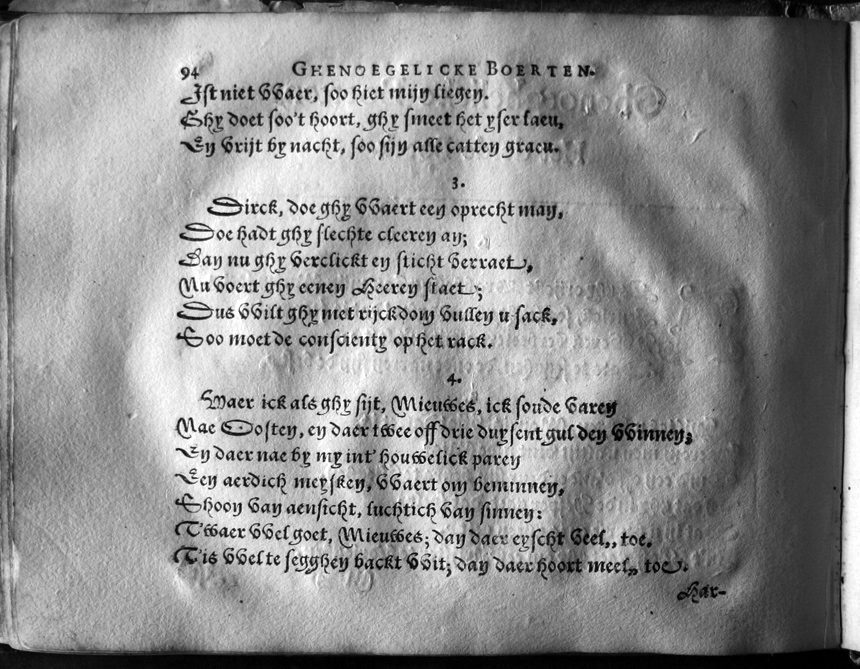 94 GHENOEGELICKE BOERTEN.
Ist niet VVaer, soo hiet mijn liegen.
Ghy doet soo't hoort, ghy smeet het yser laeu,
En vrijt by nacht, soo sijn alle catten graeu.
3.
Dirck, doe ghy VVaert een oprecht man,
Doe hadt ghy slechte cleeren an;
Dan nu ghy verclickt en sticht verraet,
Nu voert ghy eenen Heeren staet;
Dus VVilt ghy met rijckdom vullen u sack,
Soo moet de conscienty op het rack.
4.
Waer ick als ghy sijt, Mieuwes, ick soude varen
Nae Oosten, en daer twee off drie duysent gulden VVinnen;
En daer nae by my int' houwelick paren
Een aerdich meysken, VVaert om beminnen,
Shoon van aensicht, luchtich van sinnen:
T'waer VVel goet, Mieuwes; dan daer eyscht veel,, toe.
T'is VVel te segghen backt VVit; dan daer hoort meel,, toe.
Har-